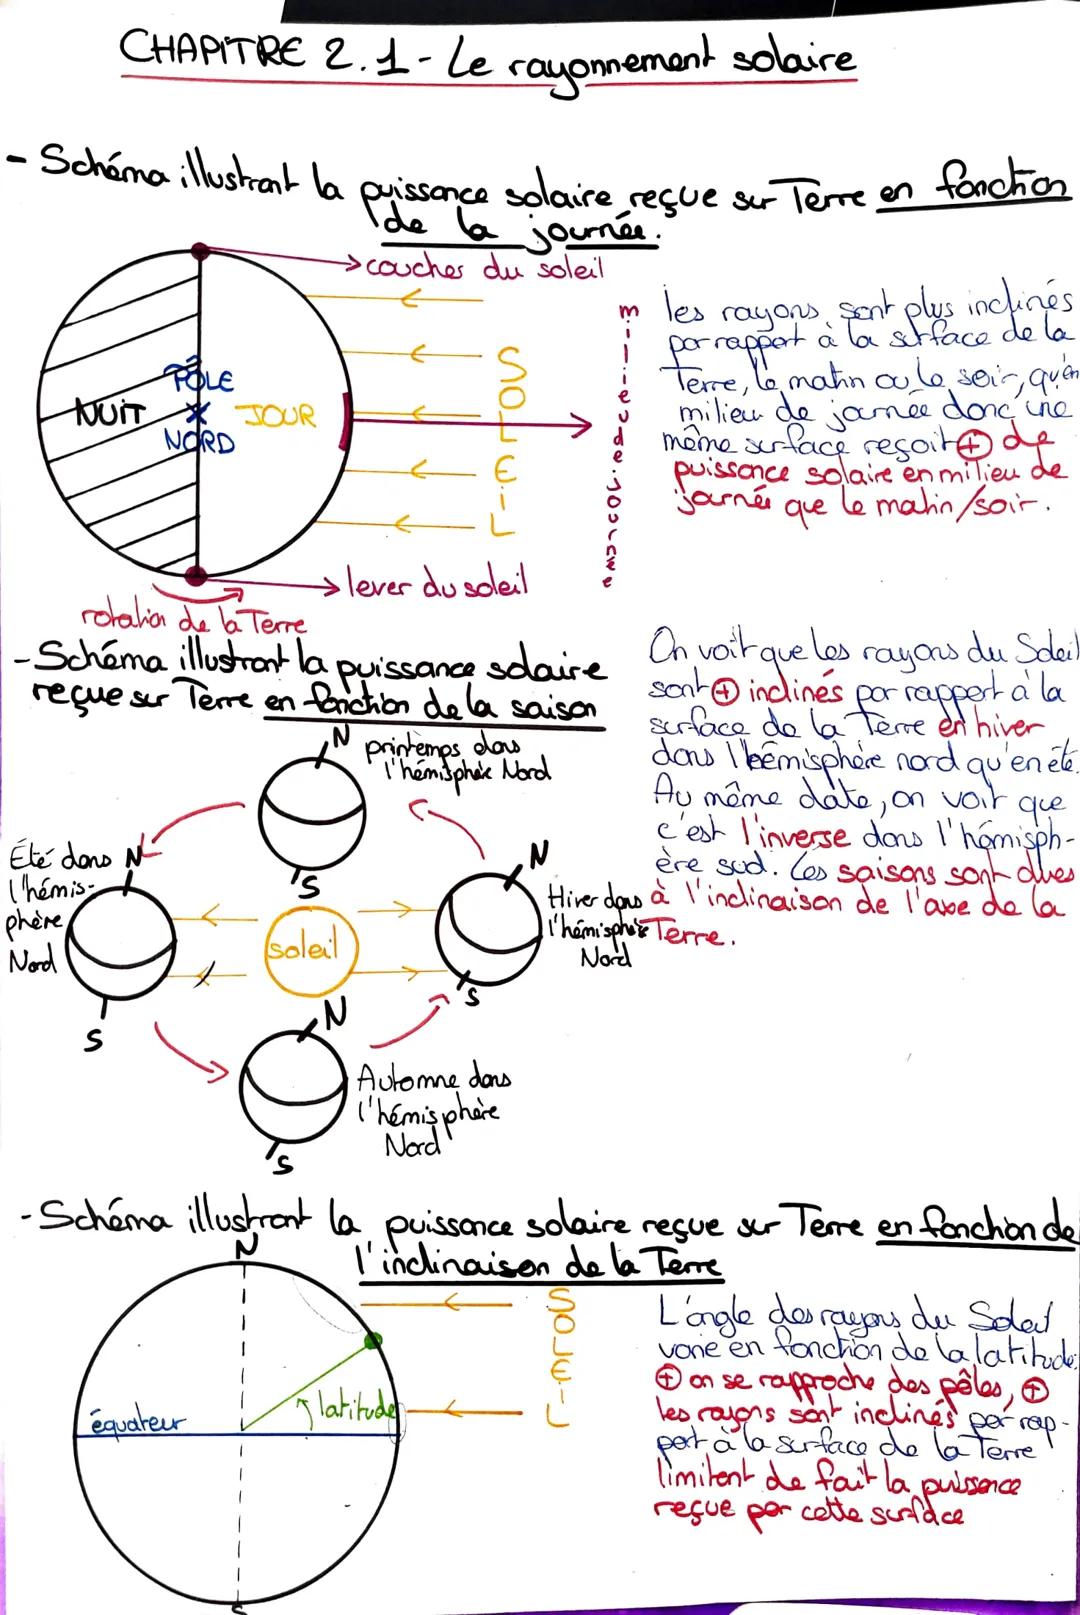 CHAPITRE 2.1 - Le rayonnement solaire
- Schéma illustrant la puissance solaire reçue sur Terre en fonction
de la journée.
couches du soleil
NUIT
PÔLE
NORD
JOUR
SOLEIL
milieu de journée
lever du soleil
rotation de la Terre
les rayons sont plus inclinés
par rapport à la surface de la
Terre, le matin ou le soir, qu'en
milieu de journée donc une
même surface reçoit + de
puissance solaire en milieu de
journée que le matin/soir.
- Schéma illustrant la puissance solaire
reçue sur Terre en fonction de la saison
N
printemps dans
l'hémisphère Nord
S
Été dans
l'hémis-
phère
Nord
N
S
soleil
N
Hiver dans
l'hémisphère
Nord
S
N
Automne dans
l'hémisphère
Nord
S
On voit que les rayons du Soleil
sont + inclinés par rapport à la
surface de la Terre en hiver
dans l'hémisphère nord qu'en été.
Au même date, on voit que
c'est l'inverse dans l'hémisph-
ère sud. Les saisons sont dues
à l'inclinaison de l'axe de la
Terre.
- Schéma illustrant la puissance solaire reçue sur Terre en fonction de
l'inclinaison de la Terre
N
équateur
latitude
S
SOLEIL
L'angle des rayons du Soleil
varie en fonction de la latitude:
+ on se rapproche des pôles, +
les rayons sont inclinés par rap-
port à la surface de la Terre
limitent de fait la puissance
reçue par cette surface